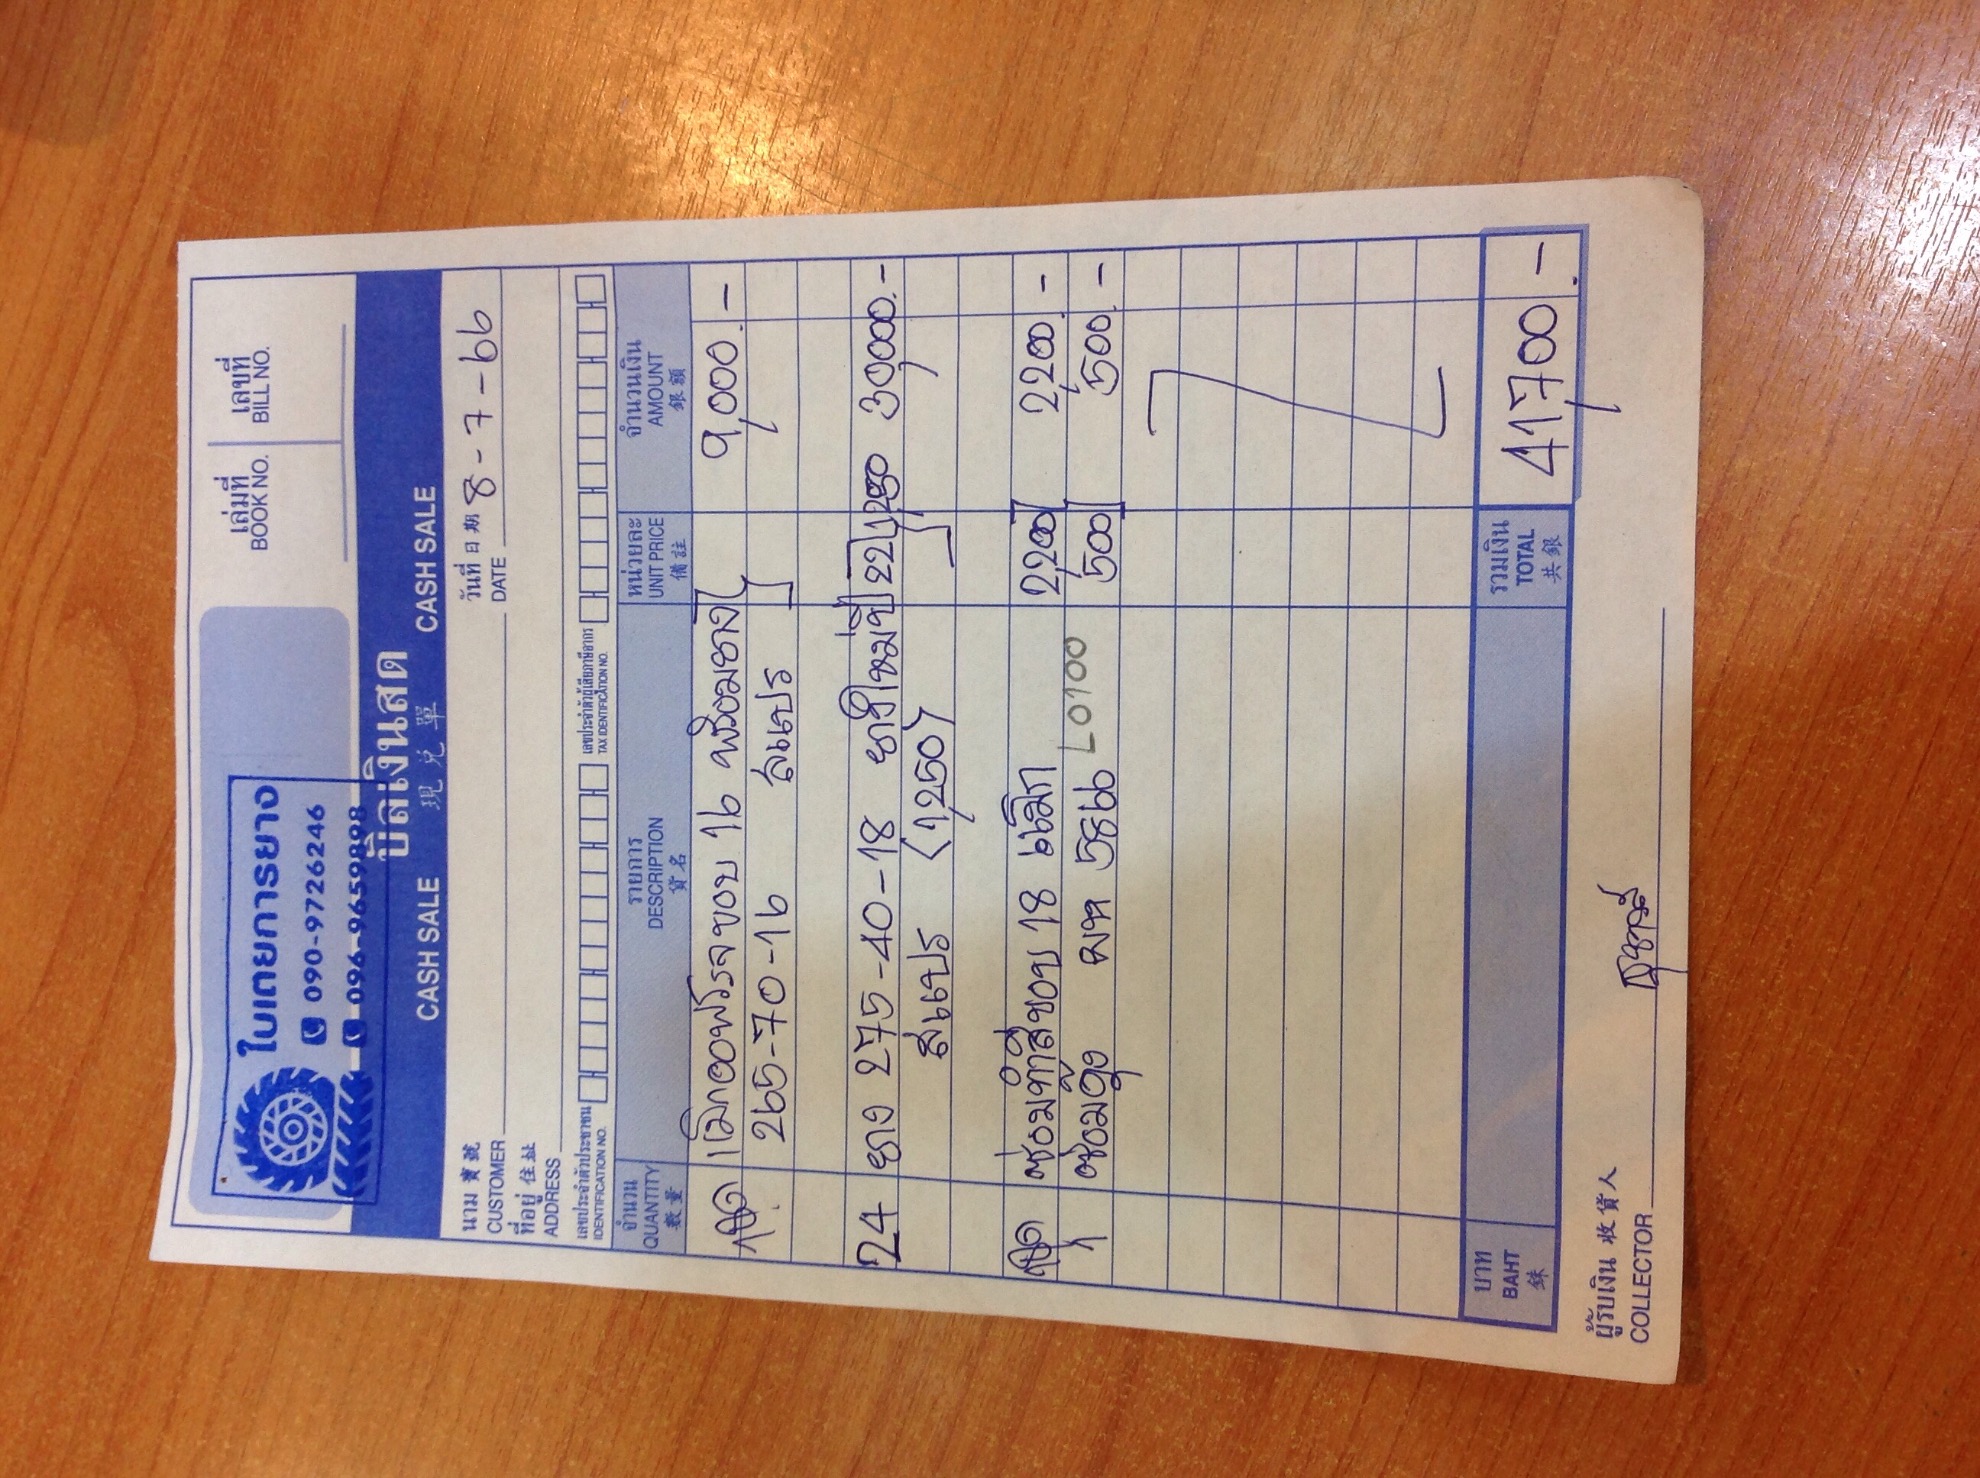 ใบเตยการยาง
090-9726246
096-9659898
เล่มที่ เลขที่
BOOK NO. BILL NO.
บิลเงินสด
CASH SALE 現兌單 CASH SALE
นาม 賣號 วันที่ 日期 8-7-66
CUSTOMER DATE
ที่อยู่ 住址
ADDRESS
เลขประจำตัวประชาชน เลขประจำตัวผู้เสียภาษีอากร
IDENTIFICATION NO. TAX IDENTIFICATION NO.
จำนวน รายการ หน่วยละ จำนวนเงิน
QUANTITY DESCRIPTION UNIT PRICE AMOUNT
數量 貨名 備註 銀額
ขอบ 16 พร้อมยาง 9,000.-
265-70-16
24 ยาง 275-40-18 ยางใหม่ปี 22 1,250 30,000.-
(1,250)
ซ่อมทำสีขอบ 18 2,200 2,200.-
1 5866 L0100 500 500.-
บาท รวมเงิน 41,700.-
BAHT TOTAL
銖 共銀
ผู้รับเงิน 收貨人
COLLECTOR